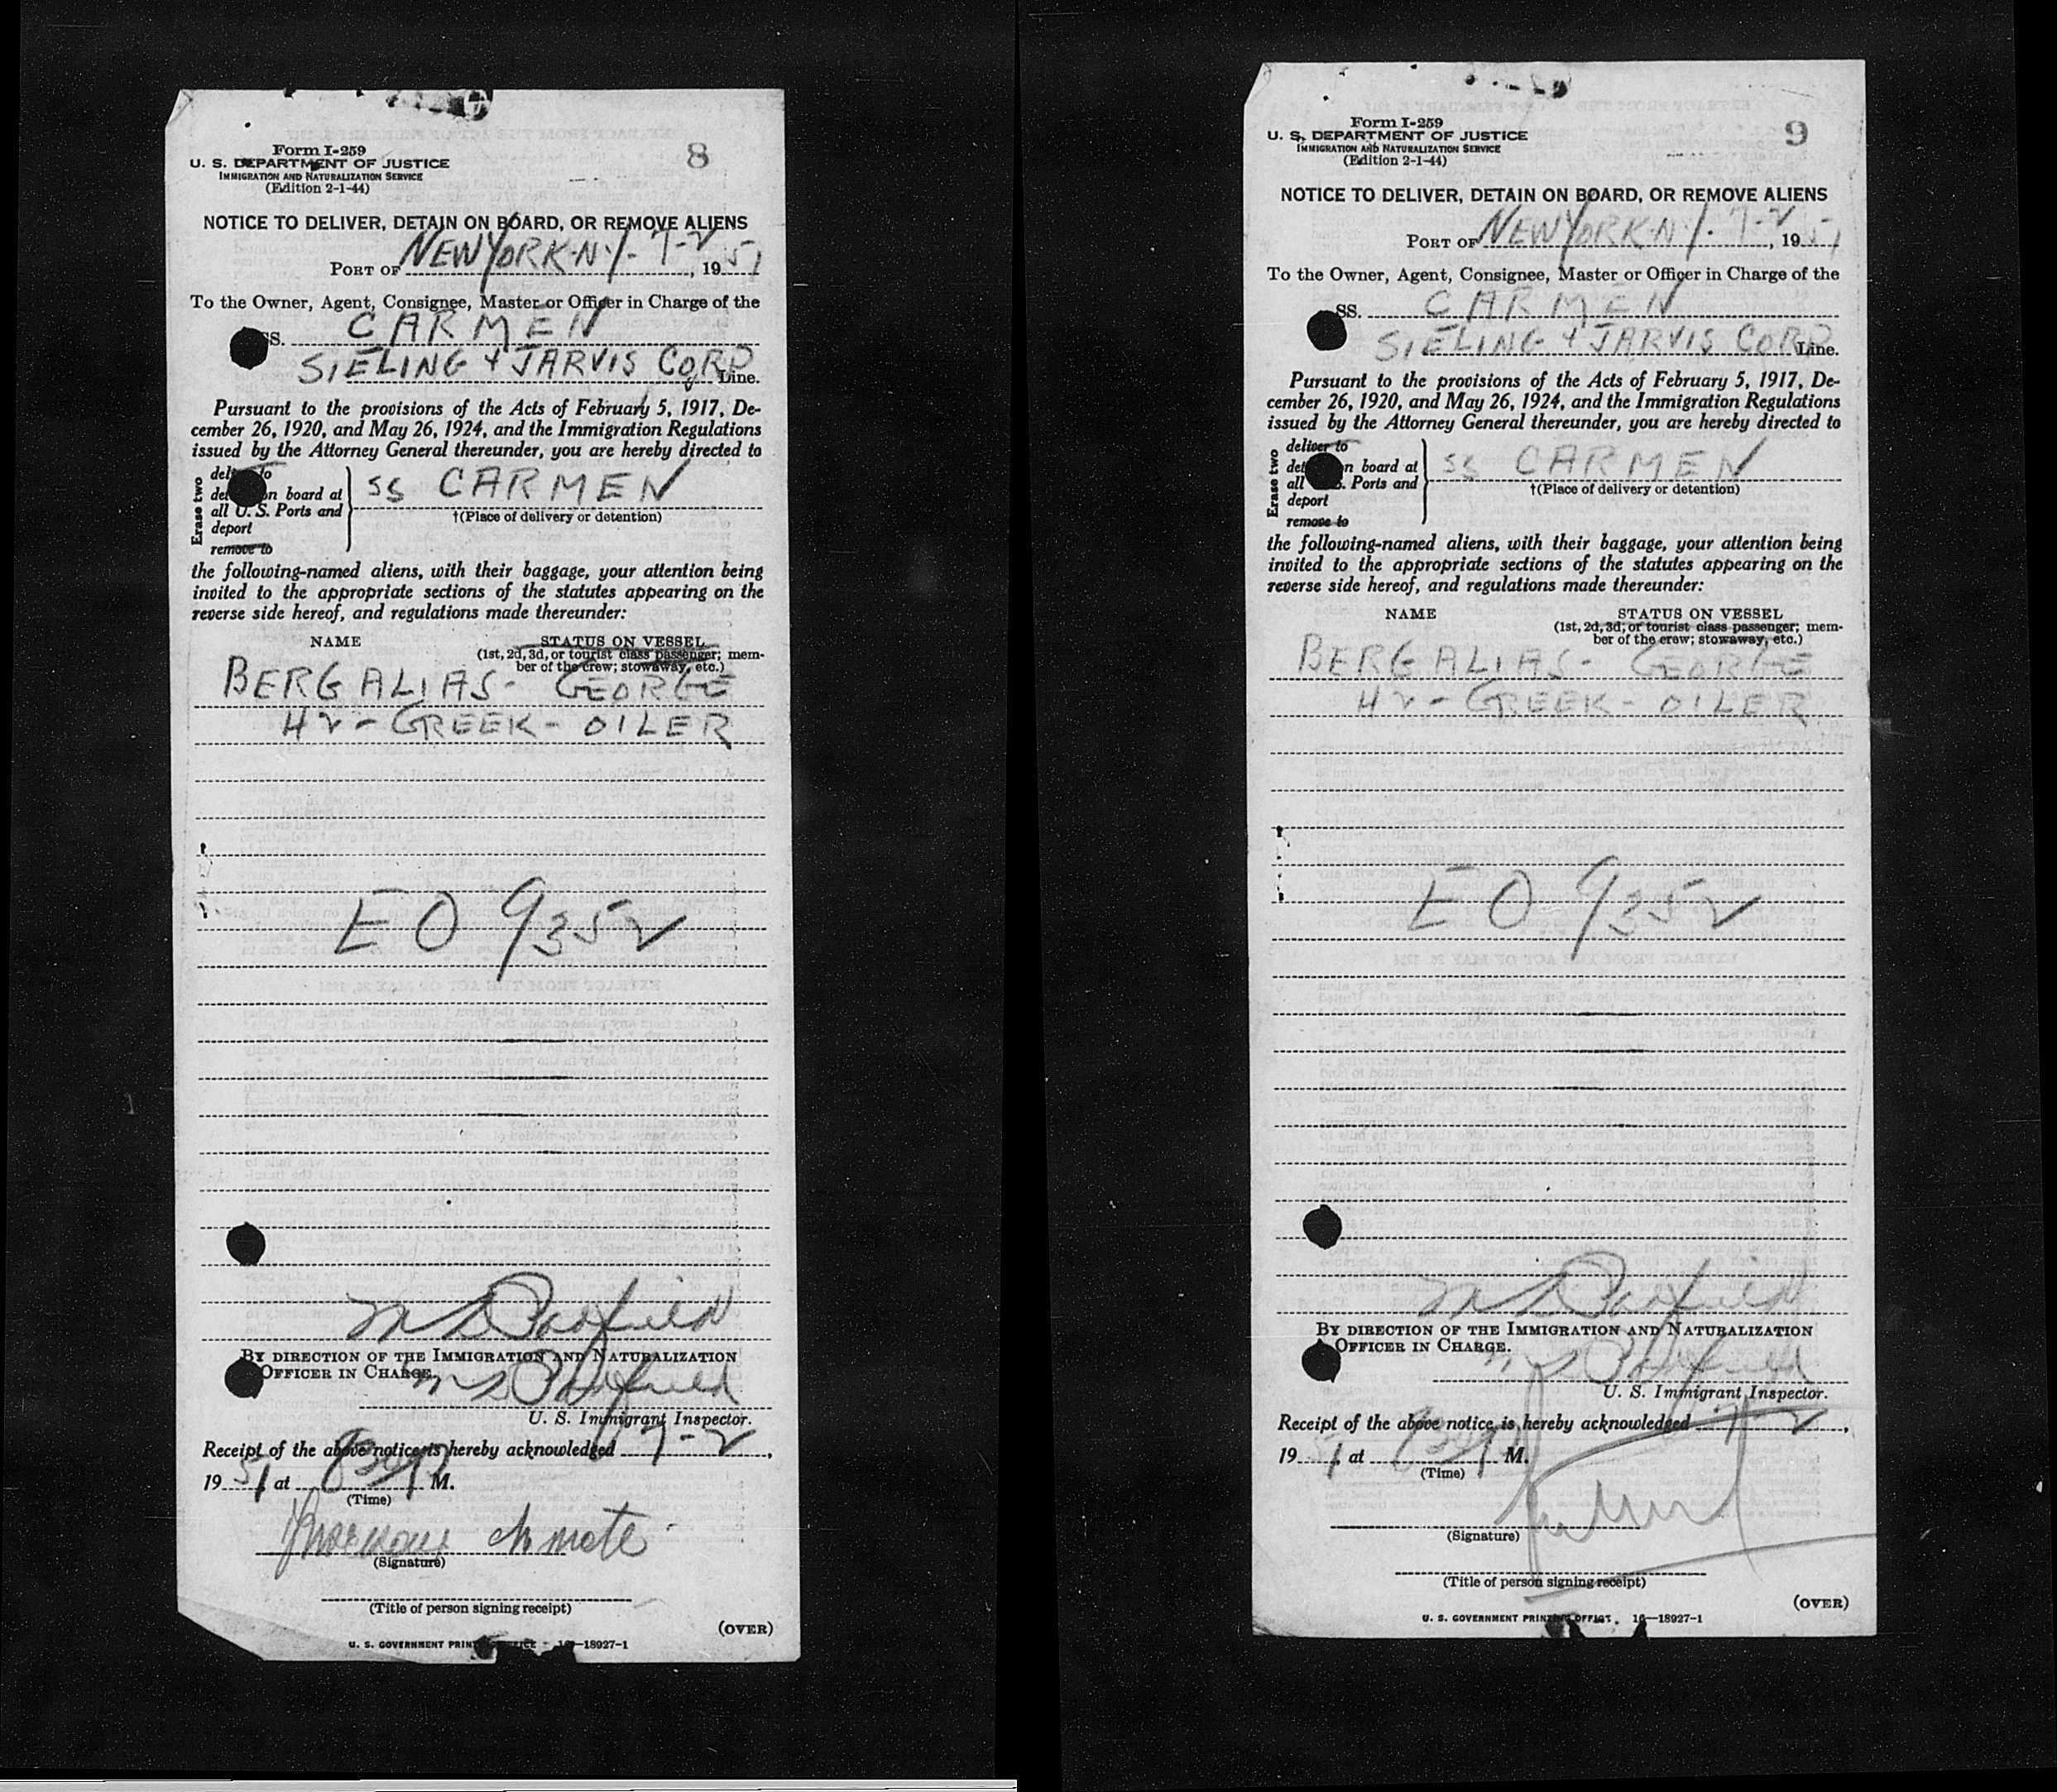 Form I-259
U. S. DEPARTMENT OF JUSTICE
IMMIGRATION AND NATURALIZATION SERVICE
(Edition 2-1-44)
8
NOTICE TO DELIVER, DETAIN ON BOARD, OR REMOVE ALIENS
PORT OF NEW YORK-N.Y.- 7-2, 1951
To the Owner, Agent, Consignee, Master or Officer in Charge of the
SS. CARMEN
SIELING + JARVIS CORP Line.
Pursuant to the provisions of the Acts of February 5, 1917, De-
cember 26, 1920, and May 26, 1924, and the Immigration Regulations
issued by the Attorney General thereunder, you are hereby directed to
Erase two
deliver to
detain on board at
all U. S. Ports and
deport
remove to
SS CARMEN
†(Place of delivery or detention)
the following-named aliens, with their baggage, your attention being
invited to the appropriate sections of the statutes appearing on the
reverse side hereof, and regulations made thereunder:
NAME STATUS ON VESSEL
(1st, 2d, 3d, or tourist class passenger; mem-
ber of the crew; stowaway, etc.)
BERGALIAS- GEORGE
42 - GREEK - OILER
EO 9352
BY DIRECTION OF THE IMMIGRATION AND NATURALIZATION
OFFICER IN CHARGE.
U. S. Immigrant Inspector.
Receipt of the above notice is hereby acknowledged 7-2,
1951 at M.
(Time)
ch mate
(Signature)
(Title of person signing receipt)
(OVER)
U. S. GOVERNMENT PRINTING OFFICE 16—18927-1
Form I-259
U. S. DEPARTMENT OF JUSTICE
IMMIGRATION AND NATURALIZATION SERVICE
(Edition 2-1-44)
9
NOTICE TO DELIVER, DETAIN ON BOARD, OR REMOVE ALIENS
PORT OF NEW YORK-N.Y. 7-2, 1951
To the Owner, Agent, Consignee, Master or Officer in Charge of the
SS. CARMEN
SIELING + JARVIS CORP Line.
Pursuant to the provisions of the Acts of February 5, 1917, De-
cember 26, 1920, and May 26, 1924, and the Immigration Regulations
issued by the Attorney General thereunder, you are hereby directed to
Erase two
deliver to
detain on board at
all U. S. Ports and
deport
remove to
SS CARMEN
†(Place of delivery or detention)
the following-named aliens, with their baggage, your attention being
invited to the appropriate sections of the statutes appearing on the
reverse side hereof, and regulations made thereunder:
NAME STATUS ON VESSEL
(1st, 2d, 3d, or tourist class passenger; mem-
ber of the crew; stowaway, etc.)
BERGALIAS- GEORGE
42 - GREEK - OILER
EO 9352
BY DIRECTION OF THE IMMIGRATION AND NATURALIZATION
OFFICER IN CHARGE.
U. S. Immigrant Inspector.
Receipt of the above notice is hereby acknowledged 7-2,
1951 at M.
(Time)
(Signature)
(Title of person signing receipt)
(OVER)
U. S. GOVERNMENT PRINTING OFFICE. 16—18927-1